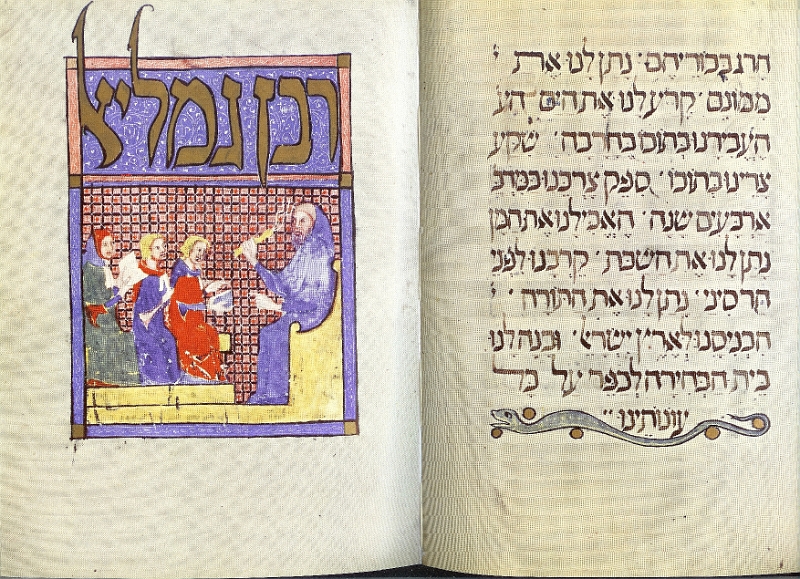 הרג בכוריהם · נתן לנו את
ממונם · קרע לנו את הים · הע
העבירנו בתוכו בחרבה · שקע
צרינו בתוכו · ספק צרכנו במדב
ארבעים שנה · האכילנו את המן
נתן לנו את השבת · קרבנו לפני
הר סיני · נתן לנו את התורה ·
הכניסנו לארץ ישרא · ובנה לנו
בית הבחירה לכפר על כל
עונותינו
רבן גמליא